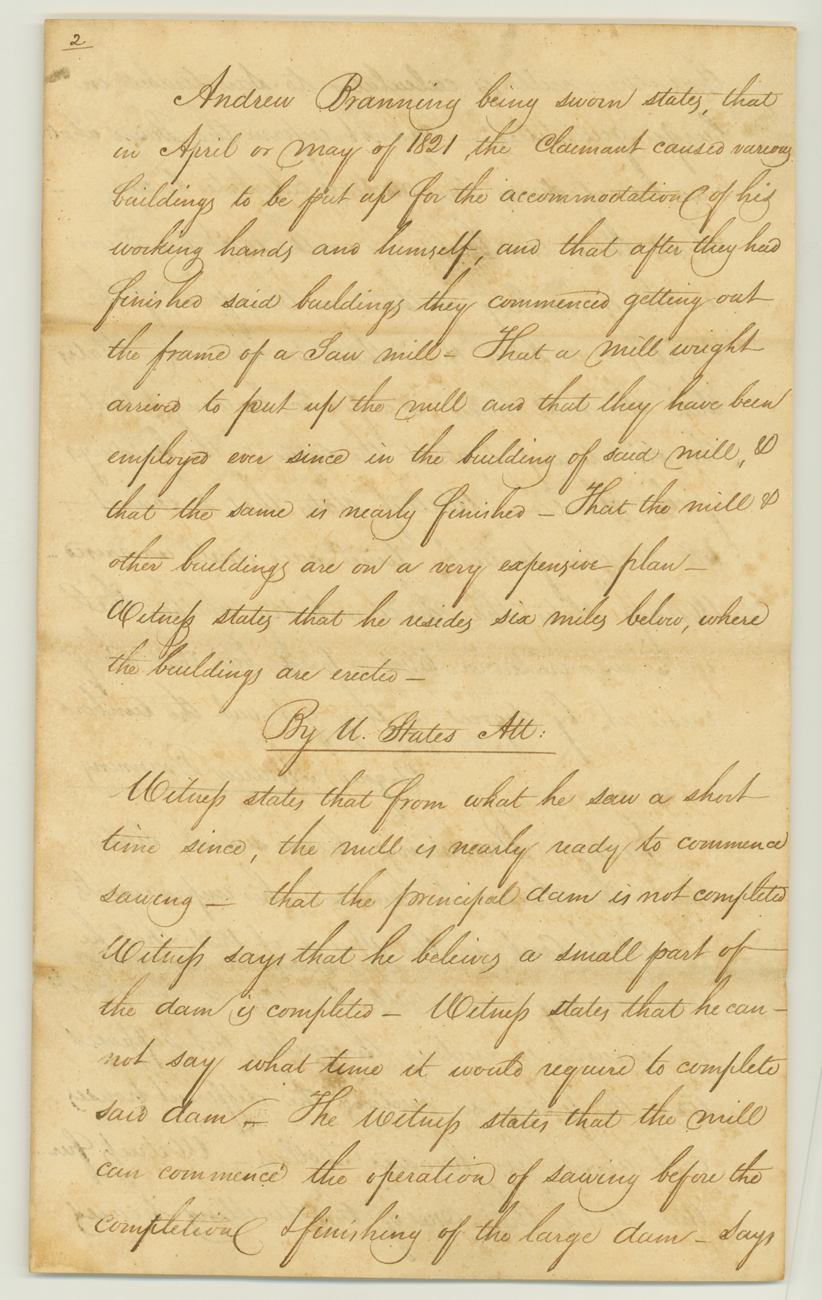 2
Andrew Branning being sworn states, that
in April or May of 1821, the Claimant caused various
buildings to be put up for the accommodation of his
working hands and himself, and that after they had
finished said buildings they commenced getting out
the frame of a Saw mill - That a mill wright
arrived to put up the mill and that they have been
employed ever since in the building of said mill, &
that the same is nearly finished - That the mill &
other buildings are on a very expensive plan -
Witness states that he resides six miles below, where
the buildings are erected -
By U. States Att:
Witness states that from what he saw a short
time since, the mill is nearly ready to commence
sawing - that the principal dam is not completed
Witness says that he beleives a small part of
the dam is completed - Witness states that he can-
not say what time it would require to complete
said dam - The Witness states that the mill
can commence the operation of sawing before the
completion & finishing of the large dam - Says